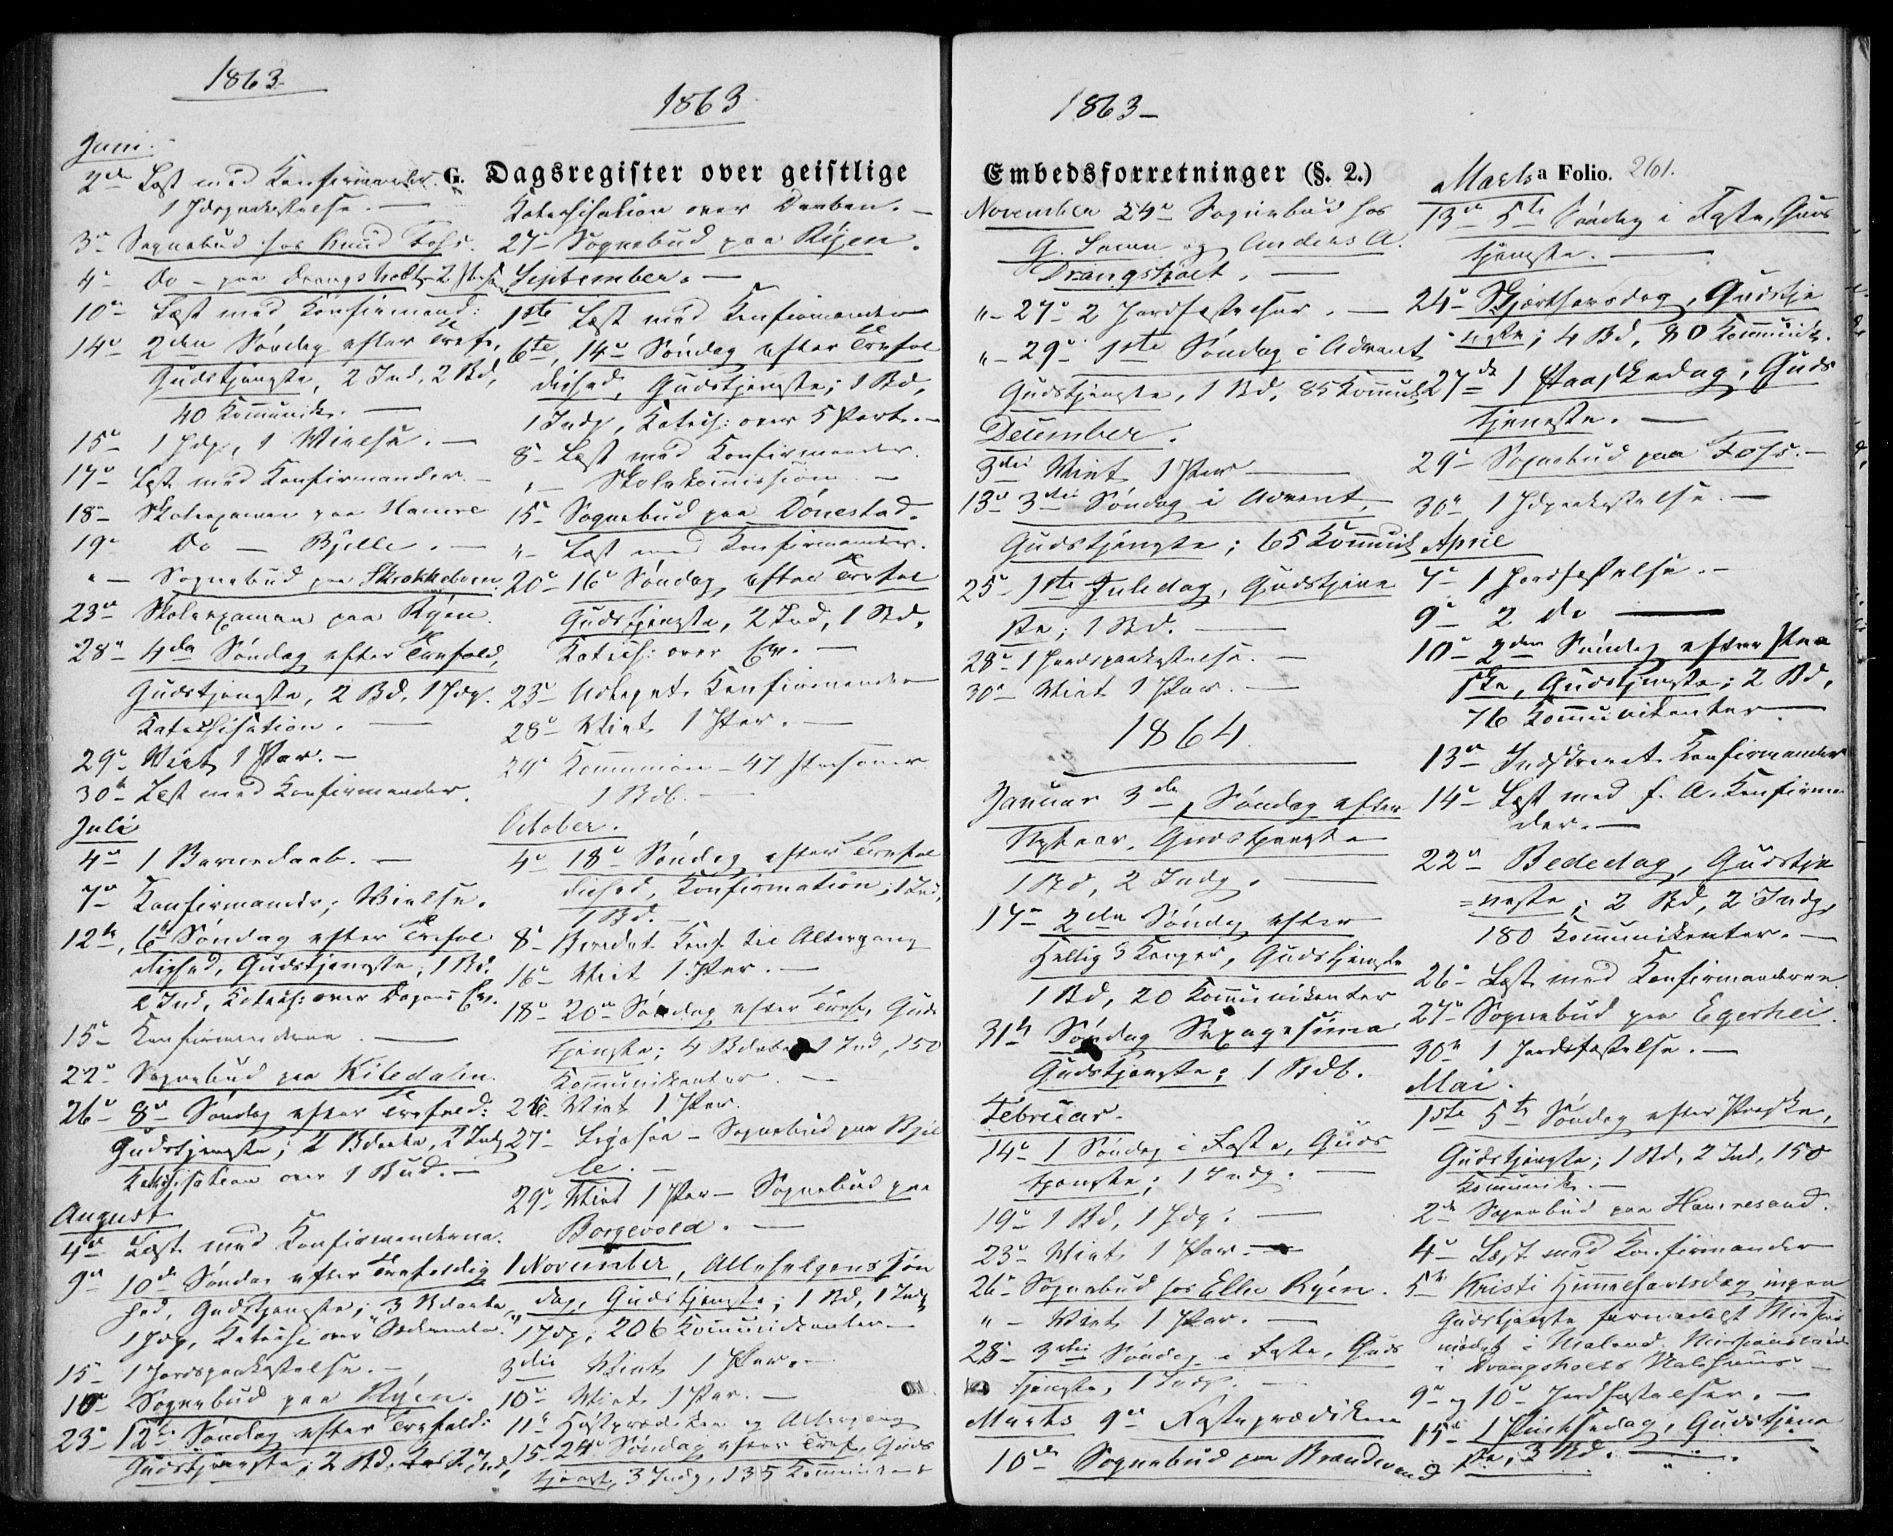 1863
1863
G. Dagsregister over geistlige
Juni.
2de Læst med Konfirmander.
1 Jdspaakastelse. —
3e Sognebud hos Knud Foss.
4e Do — paa Drangsholt,
10e Læst med Konfirmand:
14e 2den Søndag efter Tref.,
Gudstjeneste, 2 Ind, 2 Bd,
40 Komunik. —
15e 1 Jdp, 1 Vielse. —
17e Læst med Konfirmander. —
18e Skoleexamen paa Hamre
19e Do — Bjelle. —
" — Sognebud paa
23de Skoleexamen paa Ryen.
28e 4de Søndag efter Trefold,
Gudstjeneste, 2 Bd, 1 Jdp.
Katechisation. —
29e Viet 1 Par. —
30te Læst med Konfirmander.
Juli
4de 1 Barnedaab. —
7de Konfirmander, Vielse.
12te, 6te Søndag efter Trefol
dighed, Gudstjeneste, 1 Bd.
2 Ind, Katech: over Dagens Ev.
15e Konfirmanderne —
22e Sognebud paa Kiledalen.
26e 8de Søndag efter Trefold:
Gudstjeneste; 2 Bdøbte, 2 Indg
Katechisation over 1 Bud. —
August
4de Læst med Konfirmanderne.
9de 10de Søndag efter Trefoldig
hed, Gudstjeneste; 3 Bdøbte,
1 Jdp, Katechi over
15e 1 Jordspaakastelse. —
Sognebud paa Ryen.
23e 12te Søndag efter Trefold:
Gudstjeneste; 2 Bd, 2 Ind,
Katechisation over Daaben. —
27e Sognebud paa Ryen.
September. —
1ste Læst med Konfirmander
6te, 14e Søndag efter Trefol
dighed, Gudstjeneste; 1 Bd,
1 Indg, Katech: over 5 Part. —
8e Læst med Konfirmander.
" — Skolekomission —
15e Sognebud paa Dønestad.
" — Læst med Konfirmander.
20e 16e Søndag efter Trefol
Gudstjeneste, 2 Ind, 1 Bd.
Katech: over Ev. —
23e Udtegnet Konfirmander
28e Viet 1 Par. —
29e Kommunion — 47 Personer
1 Bdb. —
October.
4e 18e Søndag efter Trefol
dighed, Konfirmation, 1 Ind,
1 Bd. —
8e Konf til Altergang
16e Viet 1 Par. —
18e 20de Søndag efter Tref, Guds
tjeneste; 4 Bdøbte 1 Ind, 150
Komunikanter. —
Viet 1 Par.
27e Ligesaa — Sognebud paa Bjel
le. —
29e Viet 1 Par — Sognebud paa
Borgevold. —
1 November, Allehelgenssøn
dag, Gudstjeneste; 1 Bd, 1 Indg
1 Jdp, 206 Komunikanter —
3die Viet 1 Par. —
10e Viet 1 Par. —
11e Høstprædiken og Altergang
15e 24e Søndag efter Tref, Guds
tjenest, 3 Indg, 135 Komunikant
1863 —
Embedsforretninger (§. 2.)
a Folio. 261.
November 24e Sognebud hos
G. og Anders A.
Drangsholt. —
" — 27e 2 Jordfæstelser. —
" — 29e 1ste Søndag i Advent
Gudstjeneste, 1 Bd, 85 Komunik
December.
3die Viet 1 Par —
13e 3die Søndag i Advent,
Gudstjeneste; 65 Komunik
25e 1ste Juledag, Gudstjene
ste; 1 Bd. —
28e 1 Jordspaakastelse. —
30e Viet 1 Par. —
1864
Januar 3de, Søndag efter
Nytaar, Gudstjeneste
1 Bd, 2 Indg. —
17e 2den Søndag efter
Hellig 3 Konger, Gudstjeneste
1 Bd, 20 Komunikanter
31te Søndag Sexagesima
Gudstjeneste; 1 Bdb.
Februar.
14e 1 Søndag i Faste, Guds
tjeneste; 1 Indg. —
19e 1 Bd, 1 Jdp. —
23e Viet 1 Par. —
26e Sognebud hos Ellen Ryen.
" — Viet 1 Par. —
28e 3die Søndag i Faste, Guds
tjeneste, 1 Indg. —
Marts 9de Fasteprædiken
10de Sognebud paa
Marts
13e 5te Søndag i Faste, Guds
tjeneste. —
24e Skjærthorsdag, Gudstje
neste; 4 Bd, 80 Komunik.
27de 1 Paaskedag, Guds
tjeneste. —
29e Sognebud paa Foss. —
30e 1 Jdpaakastelse. —
April
7e 1 Jordfæstelse. —
9e 2 do —
10e 2den Søndag efter Paa
ske, Gudstjeneste; 2 Bd,
76 Komunikanter —
13de Indskrevet Konfirmander
14e Læst med f. A. Konfirman
der. —
22de Bededag, Gudstje
neste; 2 Bd, 2 Indg,
180 Komunikanter. —
26e Læst med Konfirmanderne
27e Sognebud paa Egerhei.
30te 1 Jordfæstelse. —
Mai.
1ste 5te Søndag efter Paaske,
Gudstjeneste; 1 Bd, 2 Ind, 150
Komunik. —
2de Sognebud paa Hamresand.
4e Læst med Konfirmander
5te Kristi Himmelfartsdag ingen
Gudstjeneste formedelst Missions
mødet i
i Drangsholts —
9de og 10e Jordfæstelser. —
15de 1 Pinksedag, Gudstjene
ste, 3 Bd. —